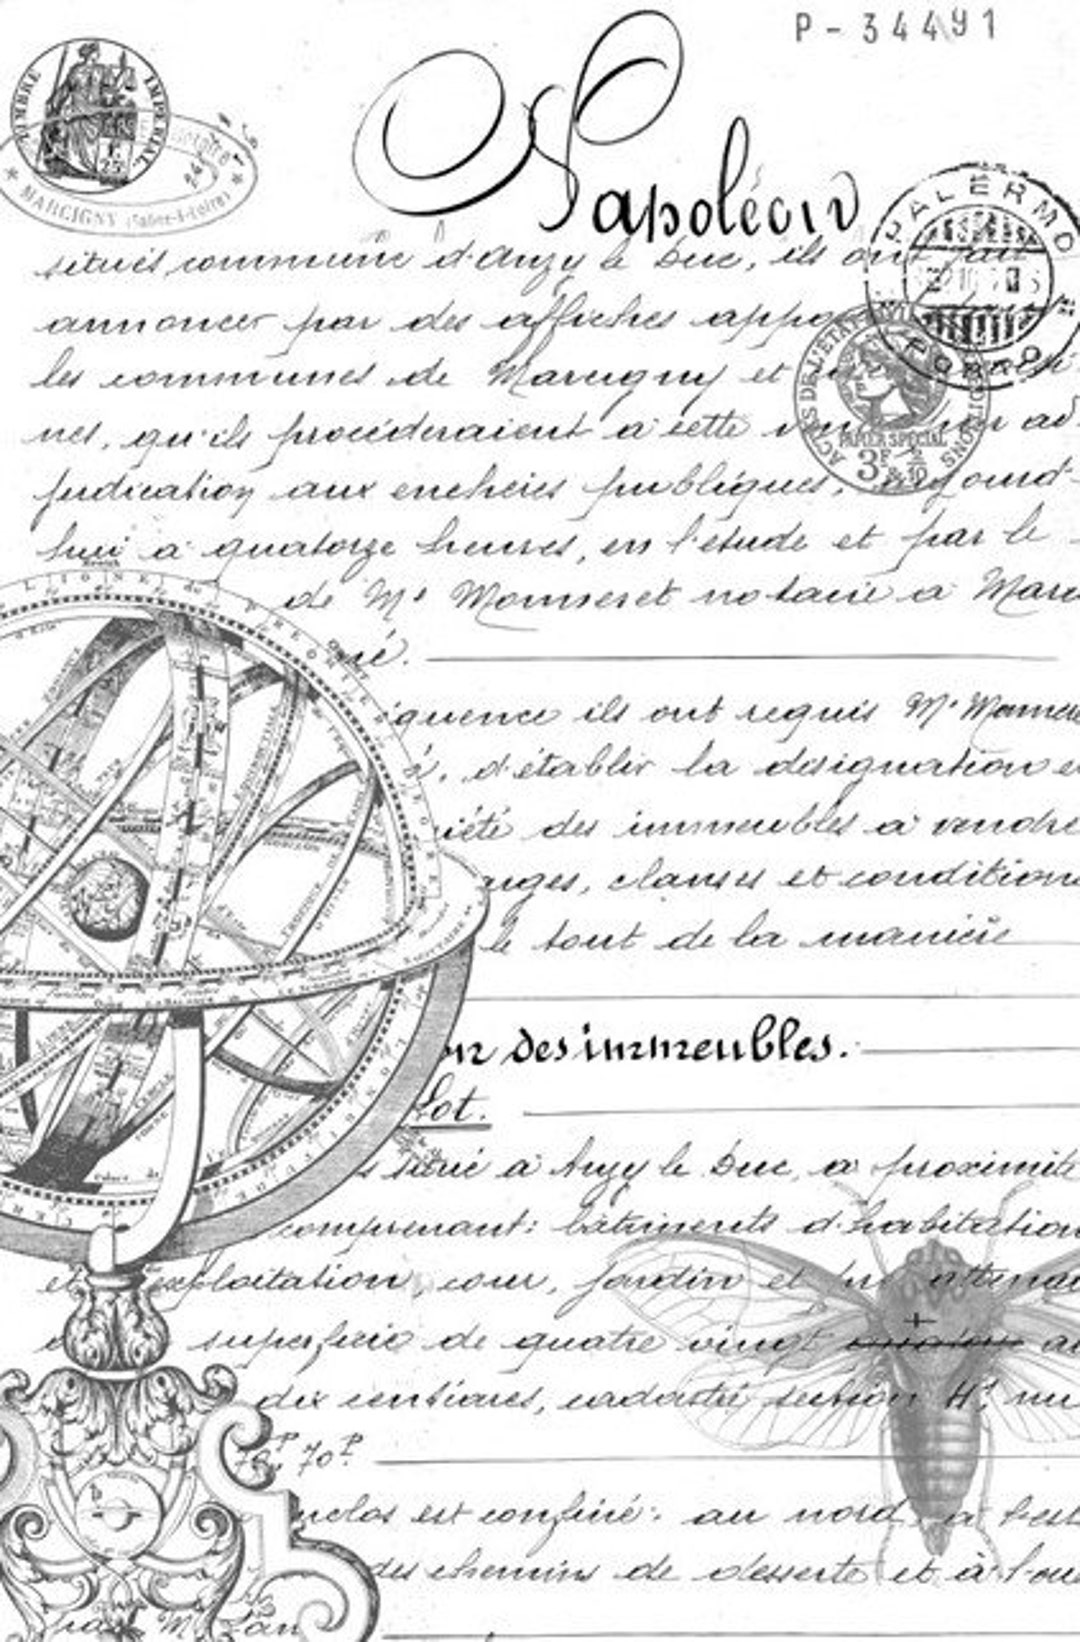 P - 34491
TIMBRE IMPERIAL
MARCIGNY (Saône-&-Loire)
Napoléon
PALERMO
situés commune d'Anzy le Duc, ils ont fait
annoncer par des affiches
les communes de Marcigny et
ACTES DE L'ETAT CIVIL
nes, qu'ils procéderaient à cette
PAPIER SPECIAL
3F
judication aux enchères publiques,
hui à quatorze heures, en l'étude et par le
de Me Monneret notaire à Marc
né.
quence ils ont requis Me Monner
é, d'établir la désignation e
riété des immeubles à vendre
arges, clauses et condition
le tout de la manière
on des immeubles.
Lot.
situé à Anzy le Duc, à proximité
comprenant: bâtiments d'habitation
et exploitation, cour, jardin et
superficie de quatre vingt
dix centiares, cadastré section H,
70P
nclos est confiné: au nord, à l'est
des chemins de desserte et à l'oue
par M.